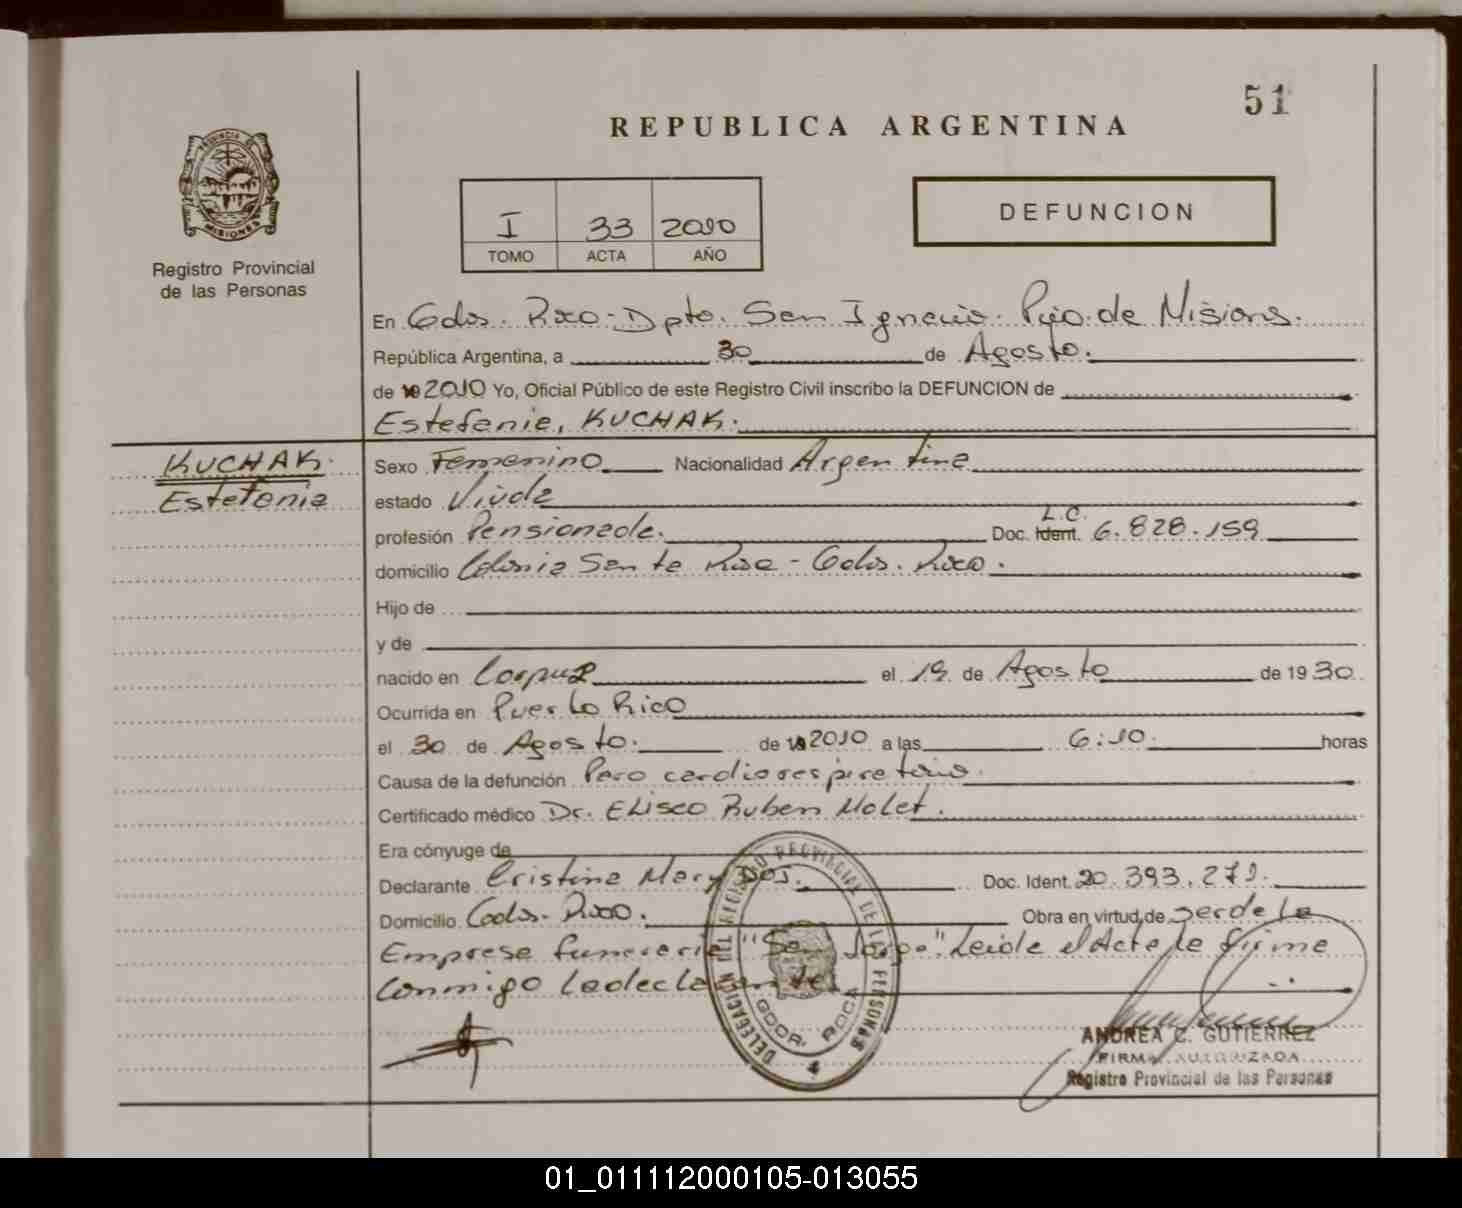 51
REPUBLICA ARGENTINA
PROVINCIA DE
MISIONES
Registro Provincial
de las Personas
I 33 2010
TOMO ACTA AÑO
DEFUNCION
En Gdor. Roca - Dpto. San Ignacio. Pcia. de Misiones.
República Argentina, a 30 de Agosto.
de 2010 Yo, Oficial Público de este Registro Civil inscribo la DEFUNCION de
Estefania, KUCHAK.
KUCHAK
Estefania
Sexo Femenino Nacionalidad Argentina
estado Viuda
profesión Pensionada. Doc. Ident. L.C. 6.828.159
domicilio Colonia Santa Rosa - Gdor. Roca.
Hijo de
y de
nacido en Corpus el 19 de Agosto de 1930
Ocurrida en Puerto Rico
el 30 de Agosto. de 2010 a las 6:10. horas
Causa de la defunción Paro cardiorespiratorio.
Certificado médico Dr. Eliseo Ruben Molet.
Era cónyuge de
Declarante Cristina Mary Doc. Ident. 20.393.279.
Domicilio Gdor. Roca. Obra en virtud de ser de la
Empresa funeraria "San Jorge". Leida el Acta la firma
Conmigo la declarante.
DELEGACION DEL REGISTRO PROVINCIAL DE LAS PERSONAS
GDOR. ROCA
ANDREA C. GUTIERREZ
FIRMA AUTORIZADA
Registro Provincial de las Personas
01_011112000105-013055